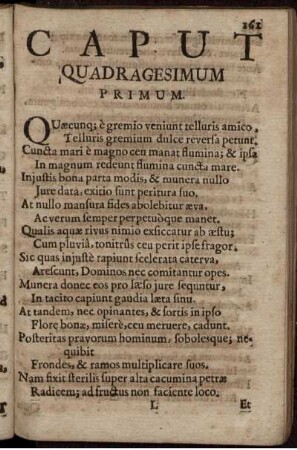 161
CAPUT
QUADRAGESIMUM
PRIMUM.
QUæcunq; è gremio veniunt telluris amico,
Telluris gremium dulce reversa petunt.
Cuncta mari è magno ceu manat flumina; & ipsa
In magnum redeunt flumina cuncta mare.
Injustis bona parta modis, & munera nullo
Jure data, exicio sunt peritura suo.
At nullo mansura fides abolebitur æva,
Ac verum semper perpetuòque manet.
Qualis aquæ rivus nimio exsiccatur ab æstu;
Cum pluviâ, tonitrûs ceu perit ipse fragor.
Sic quas injustè rapiunt scelerata caterva,
Arescunt, Dominos nec comitantur opes.
Munera donec eos pro læso jure sequntur,
In tacito capiunt gaudia læta sinu.
At tandem, nec opinantes, & fortis in ipso
Flore bonæ, miserè, ceu meruere, cadunt.
Posteritas pravorum hominum, sobolesque; ne-
quibit
Frondes, & ramos multiplicare suos.
Nam fixit sterilis super alta cacumina petræ
Radicem; ad fructus non faciente loco.
L Et